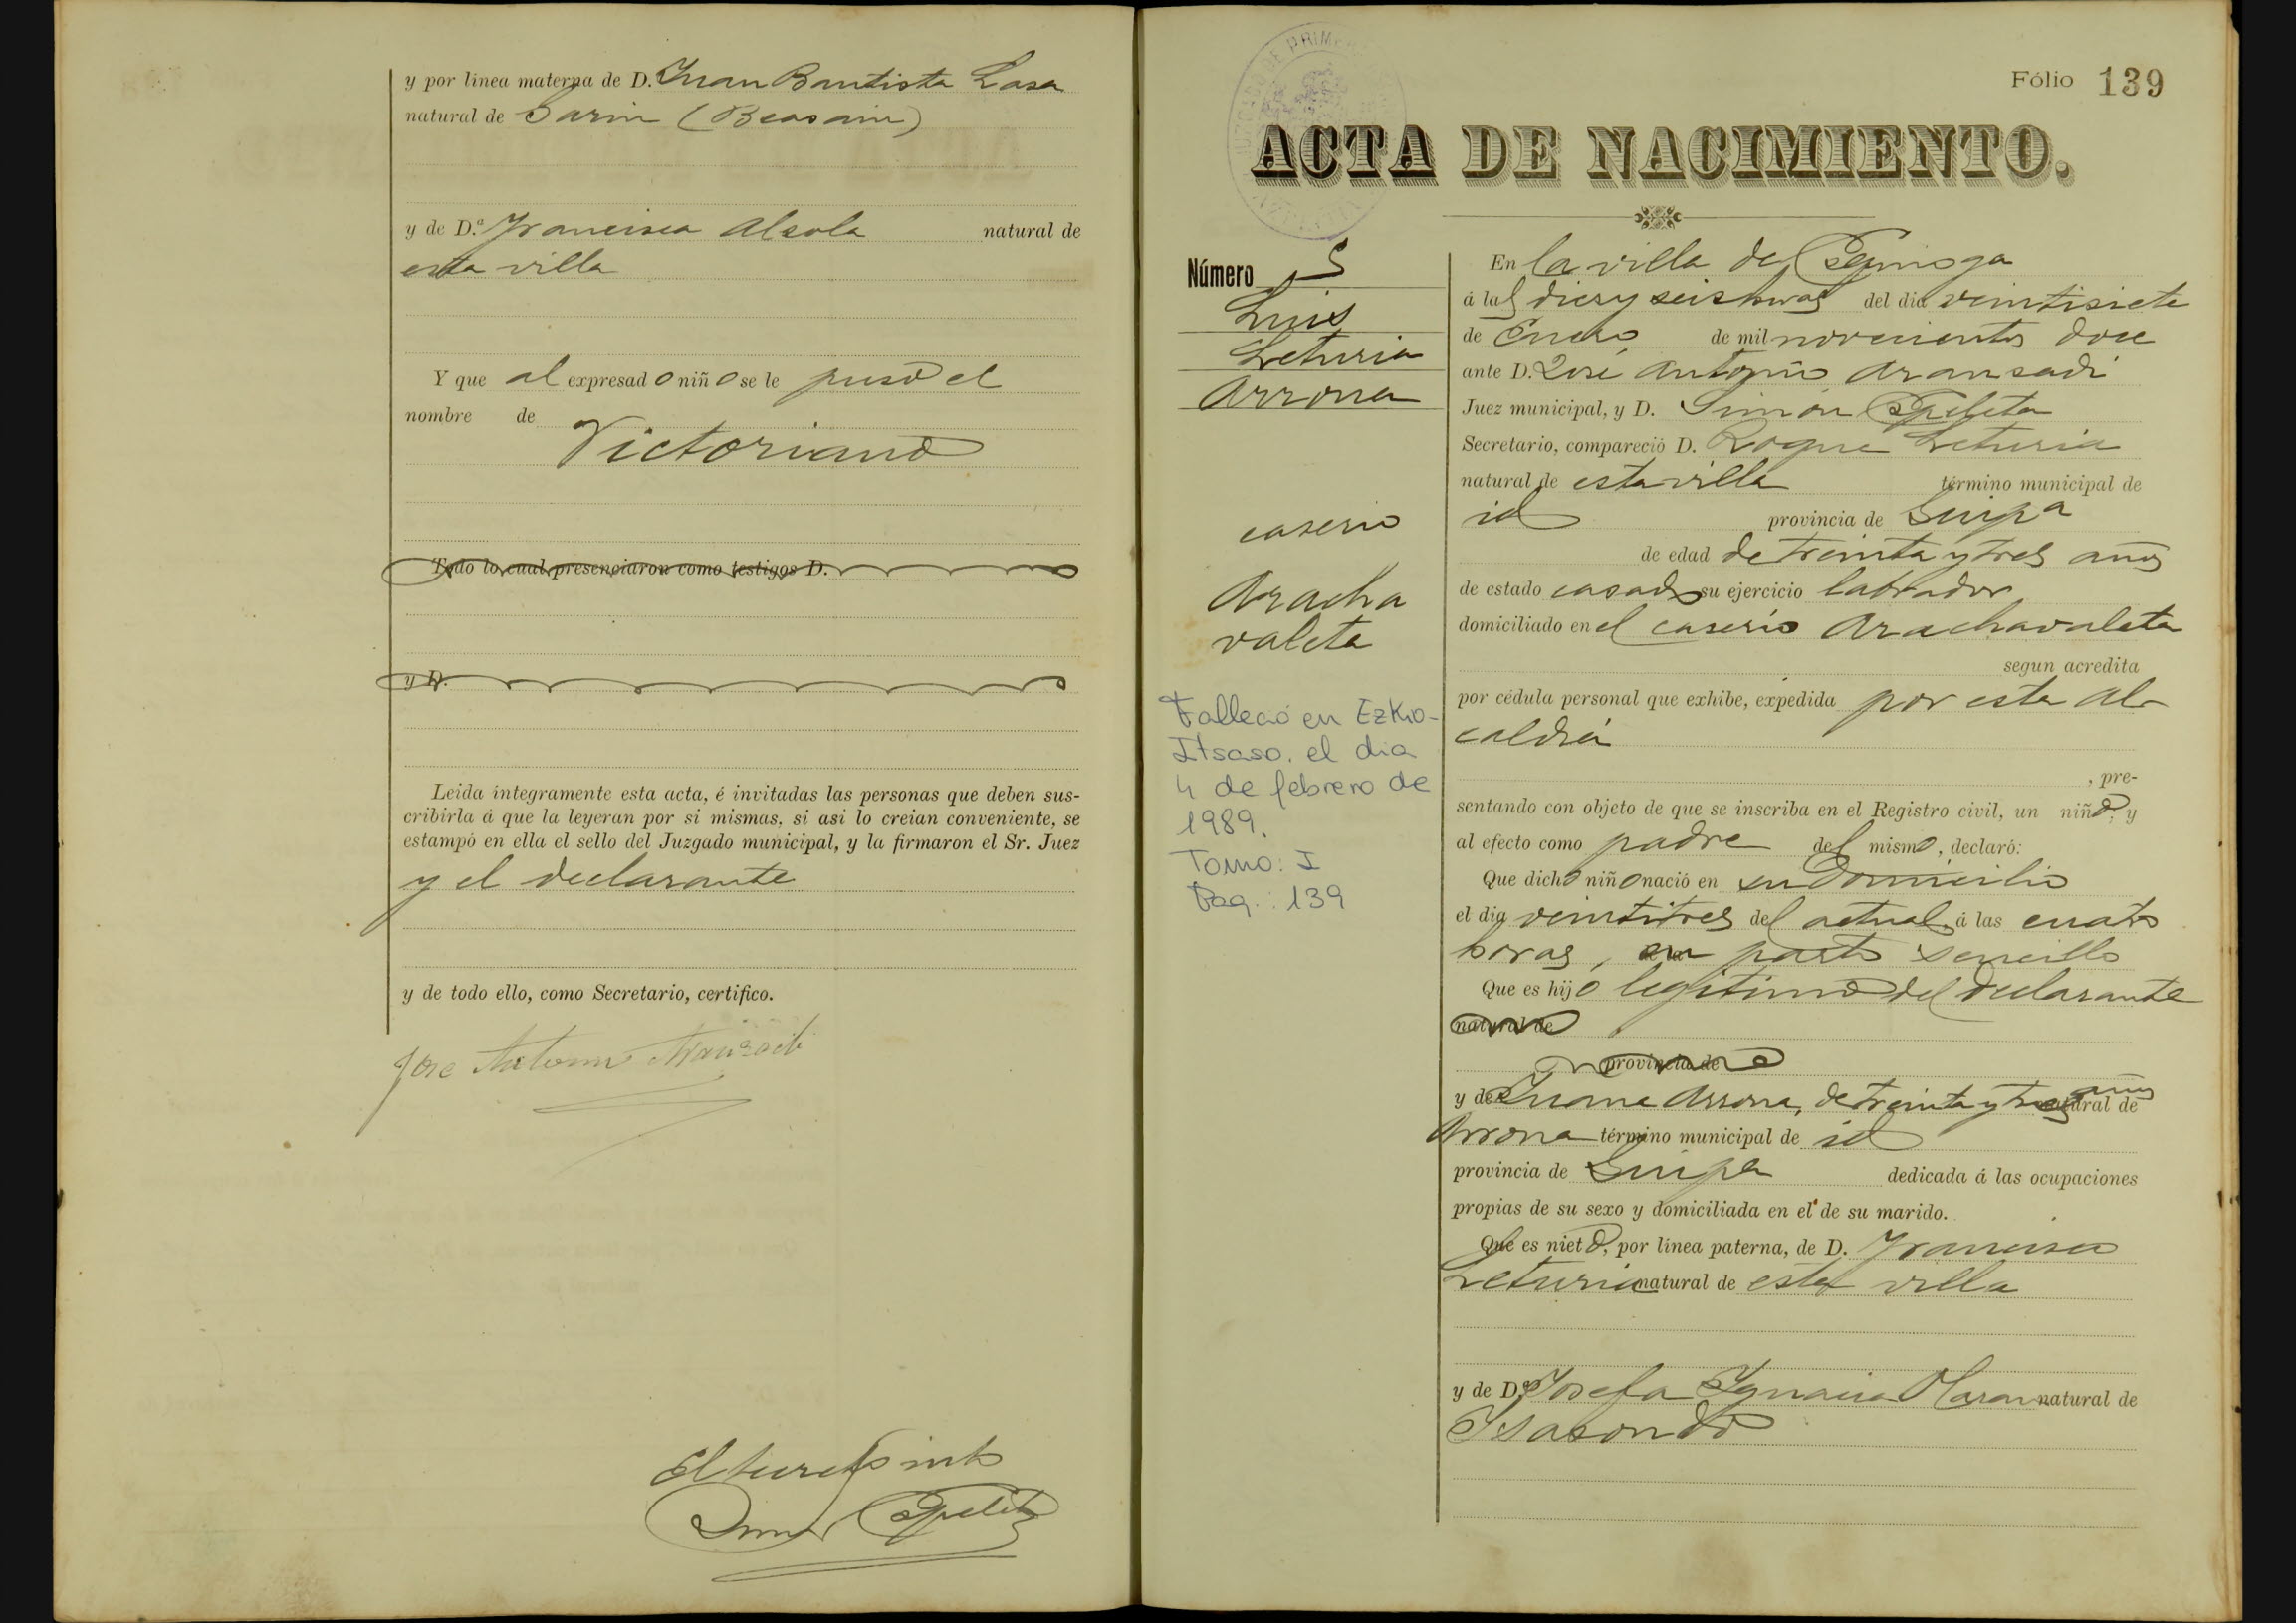 y por línea materna de D. Juan Bautista Lasa
natural de Garin (Beasain)
y de D.ª Francisca Alsola natural de
esta villa
Y que al expresado niño se le puso el
nombre de
Victoriano
Todo lo cual presenciaron como testigos D.
y D.
Leida íntegramente esta acta, é invitadas las personas que deben sus-
cribirla á que la leyeran por si mismas, si asi lo creian conveniente, se
estampó en ella el sello del Juzgado municipal, y la firmaron el Sr. Juez
y el declarante
y de todo ello, como Secretario, certifico.
Jose Antonio Aranzadi
El Secretario
Simon
Fólio 139
ACTA DE NACIMIENTO.
Número 5
Luis
Leturia
Arrona
caserio
Aracha
valeta
Falleció en Ezkio-
Itsaso. el dia
4 de febrero de
1989.
Tomo: I
Pag.: 139
En la villa de
á las diez y seis horas del dia veintisiete
de Enero de mil novecientos doce
ante D. José Antonio Aransadi
Juez municipal, y D. Simón
Secretario, compareció D. Roque Leturia
natural de esta villa término municipal de
id provincia de Guipa
de edad de treinta y tres años
de estado casado su ejercicio labrador
domiciliado en el caserio Arachavaleta
segun acredita
por cédula personal que exhibe, expedida por esta Al-
caldía
, pre-
sentando con objeto de que se inscriba en el Registro civil, un niño, y
al efecto como padre del mismo, declaró:
Que dicho niño nació en su domicilio
el dia veintitres del actual á las cuatro
horas, en parto sencillo
Que es hijo legítimo del declarante
natural de
provincia de
y de Juana Arrona, de treinta y tres años natural de
Arrona término municipal de id
provincia de Guipa dedicada á las ocupaciones
propias de su sexo y domiciliada en el de su marido.
Que es nieto, por línea paterna, de D. Francisco
Leturia natural de esta villa
y de D.ª Josefa Ignacia natural de
Isasondo